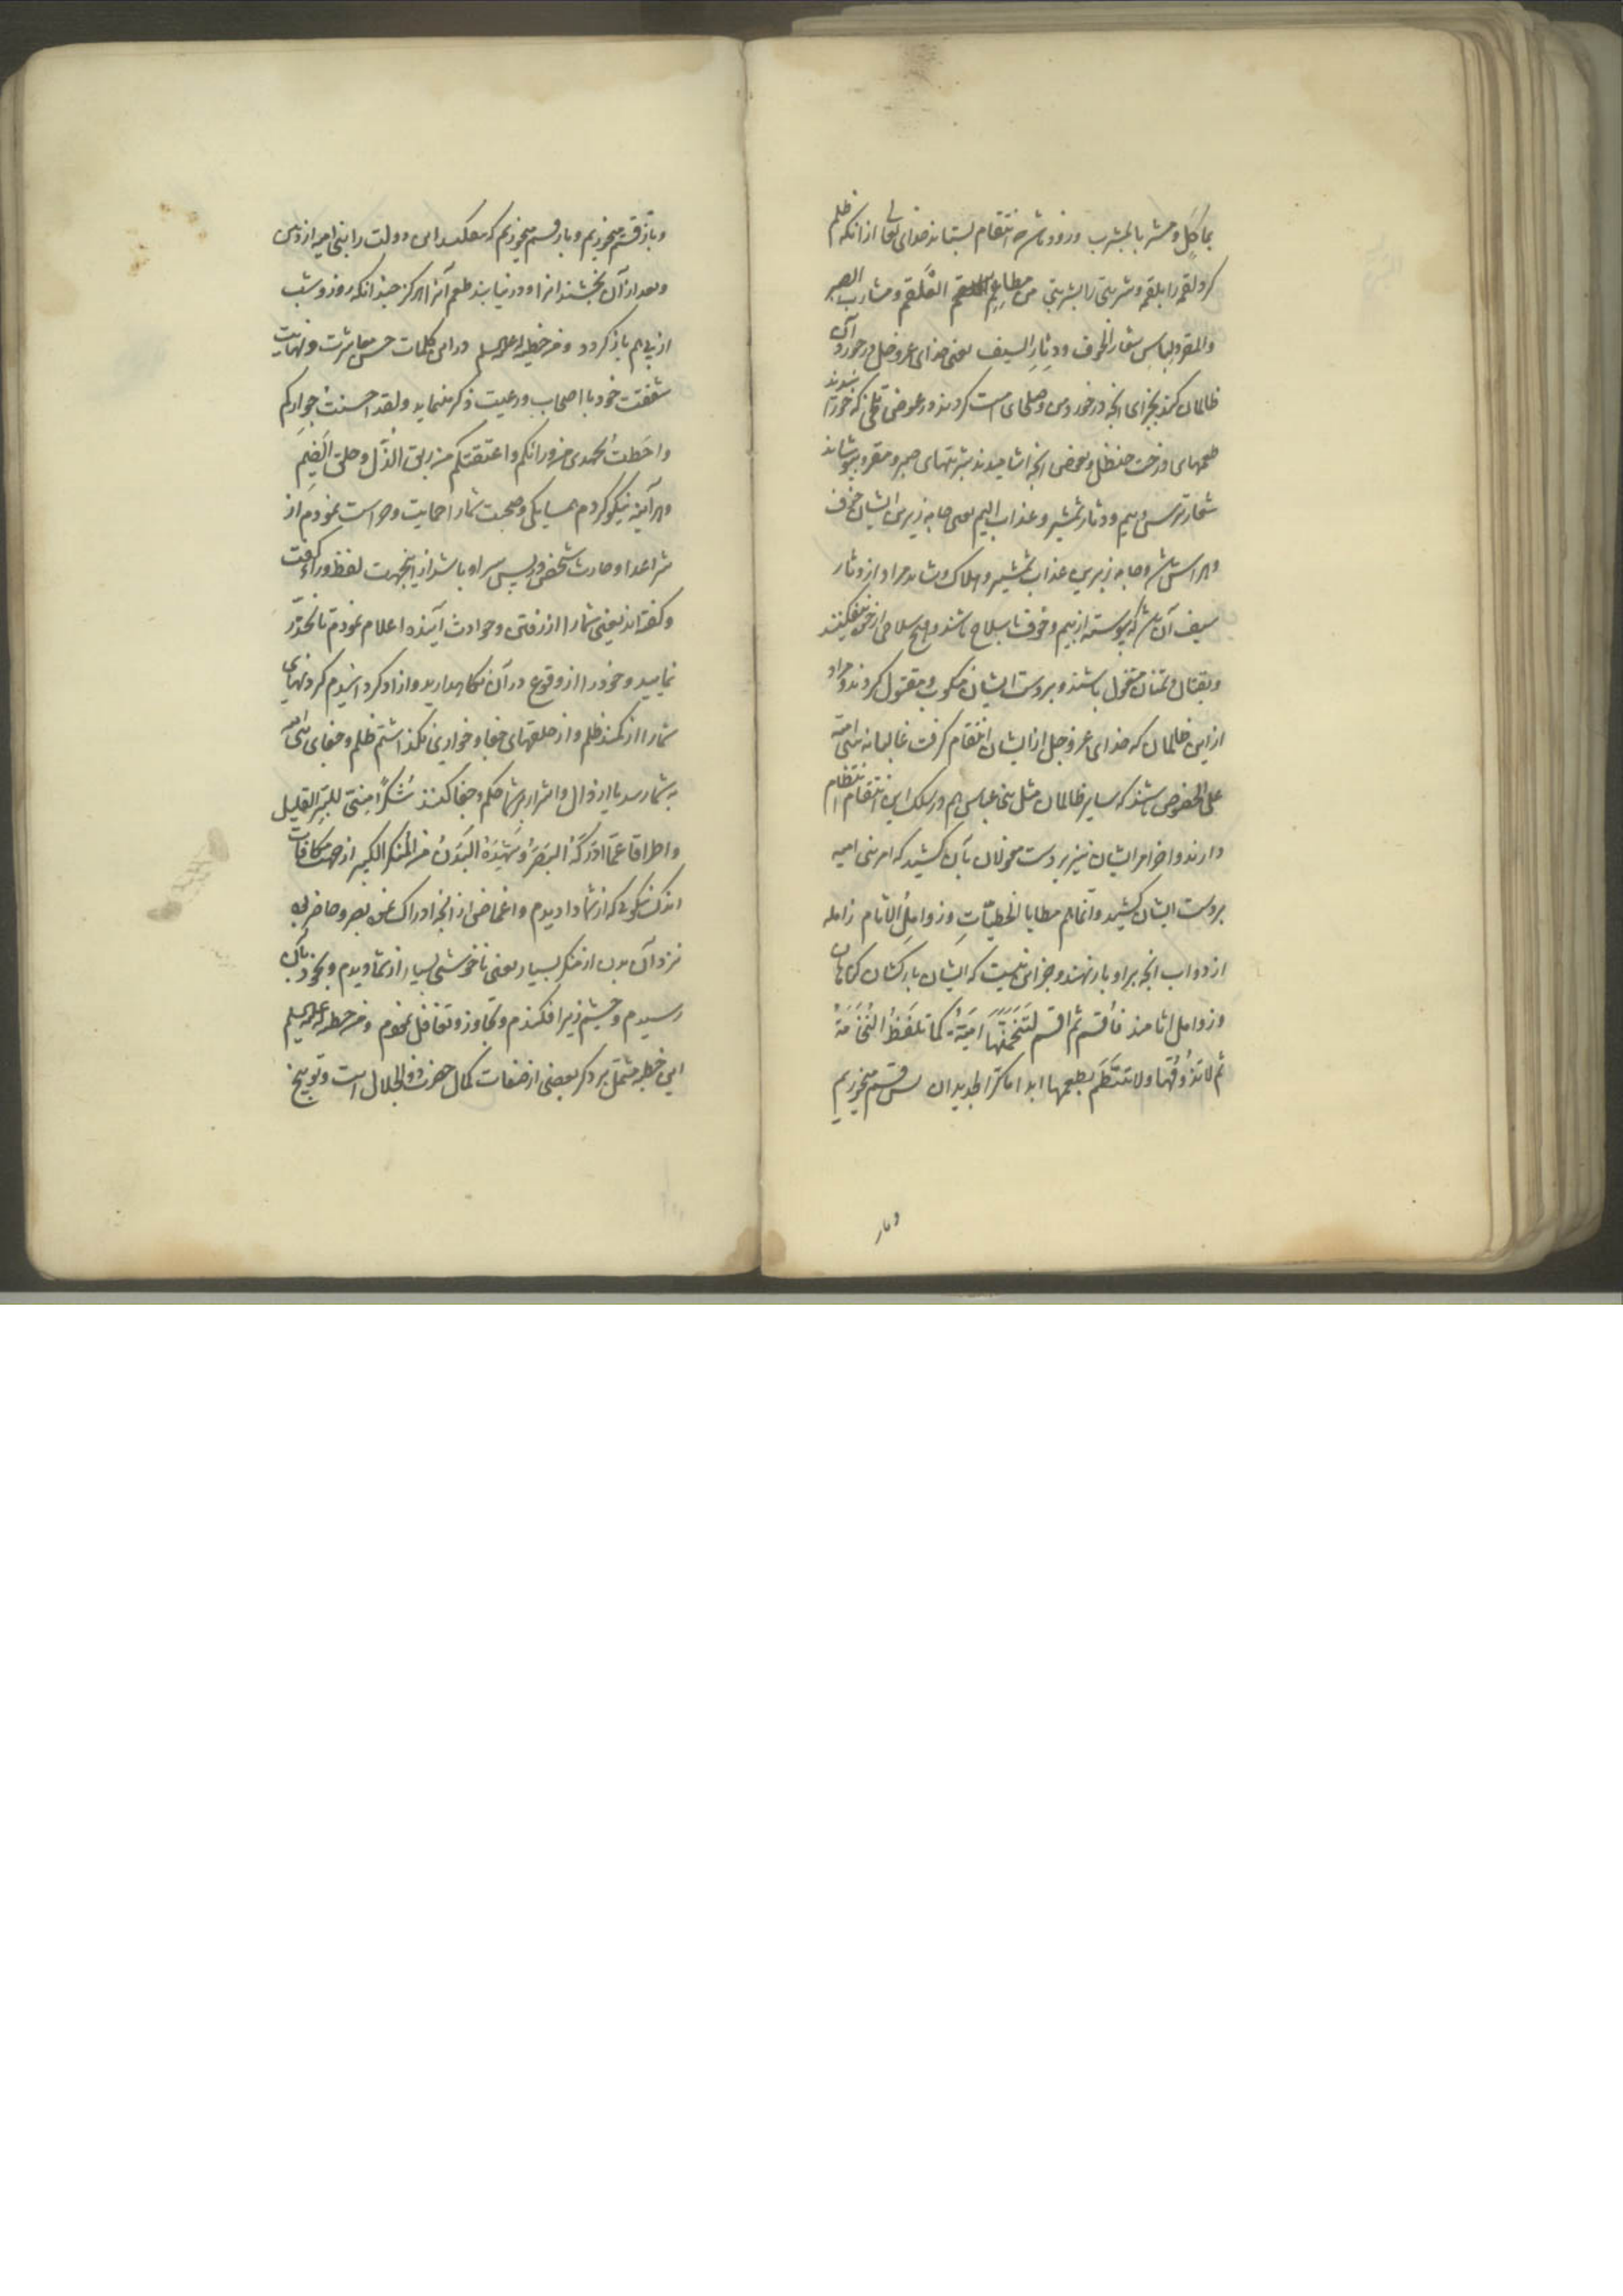 بماکل و مشربا بمشرب و زود باشد که انتقام بستاند خدای تعالی از آنکه ظلم
کرد لقمه را بلقمه و شربتی را بشربتی من مطاعم العلقم و مشارب الصبر
والمقر و لباس شعار الخوف و دثار السیف یعنی خدای عز و جل در خورد آن
ظالمان کند بجزای آنچه در خورد
طعمهای درخت حنظل و بعوض آنچه اشامیدند شربتهای صبر و مقر و بپوشاند
شعار ترس و بیم و دثار شمشیر و عذاب الیم یعنی جامه زیرین ایشان خوف
و هراس باشد و جامه زبرین عذاب شمشیر و هلاک و شاید مراد از دثار
سیف آن باشد که پیوسته از بیم و خوف با سلاح باشند و هیچ سلاحی از خود نیفکنند
و بقتال دشمنان مشغول باشند و بر دست ایشان منکوب و مقتول کردند و مراد
از این ظالمان که خدای عز و جل از ایشان انتقام کرفت غالبا بنی امیه
علی الخصوص باشند که سایر ظالمان مثل بنی عباس هم در سلک این انتقام انتظام
دارند و اخر امر ایشان نیز بر دست مغولان بآن کشید که امر بنی امیه
بر دست ایشان کشید و انما هم مطایا الخطیات و زوامل الاثام زامله
از دواب آنچه بر او بار نهند و جز این نیست که ایشان بارکشان کناهان
و زوامل اثامند فاقسم ثم اقسم لتنخمنها امیة کما تلفظ النخامة
ثم لا تذوقها و لا تتطعم بطعمها ابدا ما کر الجدیدان پس قسم میخوریم
و باز
و باز قسم میخوریم و باز قسم میخوریم که بیفکند این دولت را بنی امیه از دهن
و بعد از آن نچشند انرا و درنیابند طعم آنرا هرکز چندانکه روز و شب
از پی هم باز کردد و من خطبة له علیه السلم در این کلمات حسن معاشرت و نهایت
شفقت خود با اصحاب و رعیت ذکر مینماید و لقد احسنت جوارکم
و احطت بجهدی من ورائکم و اعتقتکم من ربق الذل و حلق الضیم
و هر آینه نیکو کردم همسایکی و صحبت شما را حمایت و حراست نمودم از
شر اعدا و حادث شخص در پس سر او باشد از اینجهت لفظ وراء کفت
و کفته‌اند یعنی شما را از فتن و حوادث آینده اعلام نمودم تا تحذر
نمایید و خود را از وقوع در آن نکاه دارید و ازاد کردانیدم کردنهای
شما را از کمند ظلم و از حلقهای جفا و خواری نکذاشتم ظلم و جفای بنی امیه
به شما رسد یا ارذال و اشرار بر شما حکم و جفا کنند شکرا منی للبر القلیل
و اطراقا عما ادرکه البصر و شهده البدن من المنکر الکثیر از جهت مکافات
اندک نیکویی که از شما دیدم و اغماض از آنچه ادراک نمود بصر و حاضر بود
نزد آن بدن از منکر بسیار یعنی ناخوشی بسیار از شما دیدم و بخود بآن
رسیدم و چشم زیر افکندم و تجاوز و تغافل نمودم و من خطبة له علیه السلم
این خطبه مشتمل بر ذکر بعضی از صفات کمال حضرت ذو الجلال است و توبیخ